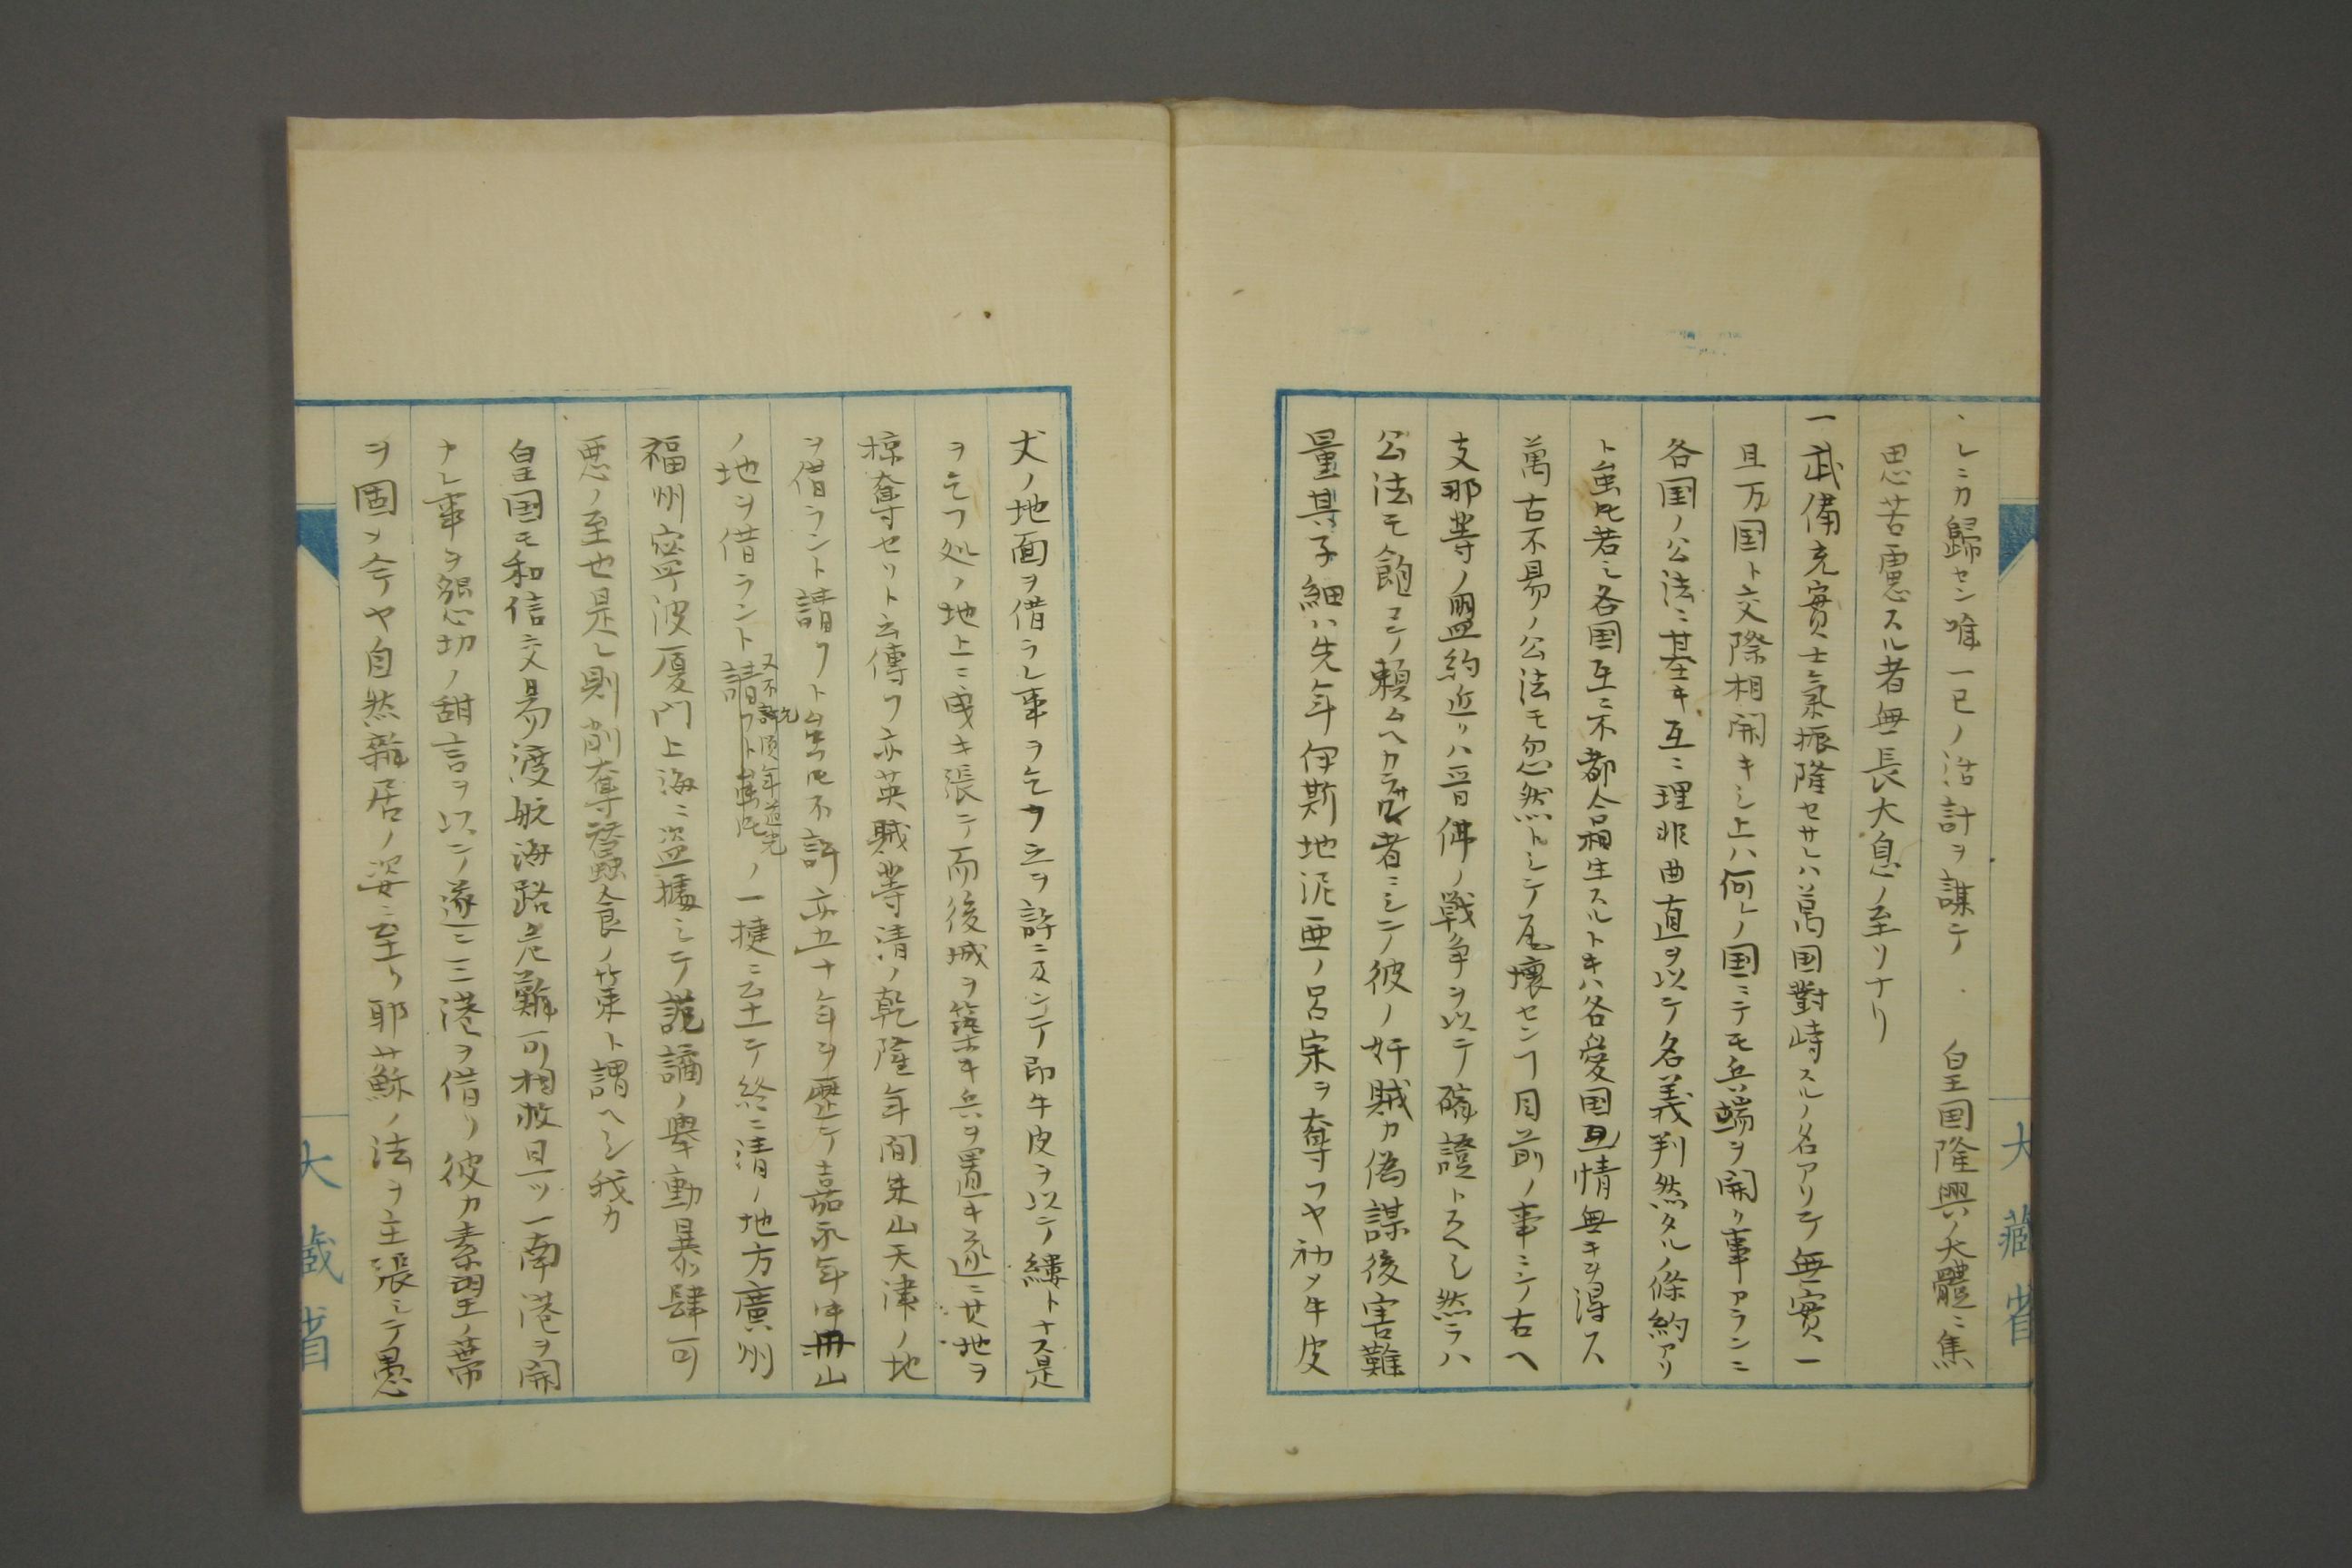 レニカ歸セン唯一己ノ活計ヲ謀テ 皇国隆興ノ大體ニ焦
思苦慮スル者無長大息ノ至リナリ
一武備充實士氣振隆セサレハ萬国對峙スルノ名アリテ無實一
且万国ト交際相開キシ上ハ何レノ国ニテモ兵端ヲ開ク事アランニ
各国ノ公法ニ基キ互ニ理非曲直ヲ以テ名義判然タルノ條約アリ
ト虽𪜈若シ各国互ニ不都合相生スルトキハ各愛国ノ情無キヲ得ス
萬古不易ノ公法モ忽然トシテ瓦壞センヿ目前ノ事ニシテ古ヘ
支那等ノ盟約近クハ普佛ノ戦争ヲ以テ確證トスヘシ然ラハ
公法モ飽マテ頼ムヘカラサル者ニシテ彼ノ奸賊カ偽謀後害難
量其子細ハ先年伊斯地泥亜ノ呂宋ヲ奪フヤ初メ牛皮
大ノ地面ヲ借ラレ事ヲ乞フ之ヲ許ニ及ンテ即牛皮ヲ以テ縷トナス是
ヲ乞フ処ノ地上ニ曳キ張テ而後城ヲ築キ兵ヲ置キ遂ニ其地ヲ
掠奪セリト云傳フ亦英賊等清ノ乾隆年間朱山天津ノ地
ヲ借ラント請フト虽𪜈不許亦五十年ヲ歴テ嘉永年中冊山
ノ地ヲ借ラント請フト虽𪜈又不許先頃年道光ノ一捷ニ至テ終ニ清ノ地方廣州
福州寧波厦門上海ニ盗據シテ詭譎ノ擧動暴肆可
悪ノ至也是レ則削奪蠶食ノ策ト謂ヘシ我カ
皇国モ和信交易渡航海路危難可相救且ツ一両港ヲ開
ナレ事ヲ懇切ノ甜言ヲ以テ遂ニ三港ヲ借リ彼カ素望ノ蒂
ヲ固ヲ今ヤ自然雜居ノ姿ニ至リ耶蘇ノ法ヲ主張シテ愚
大藏省
大藏省